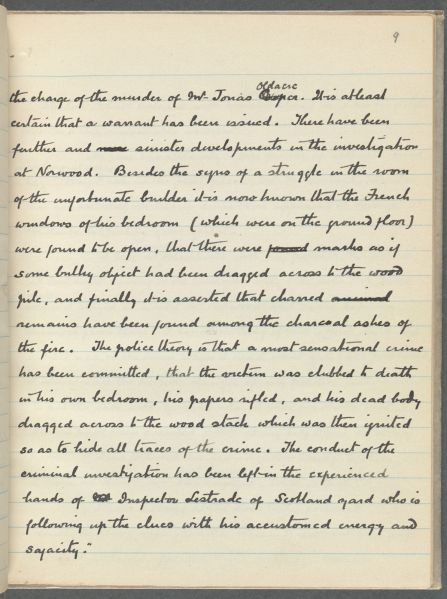 9
the charge of the murder of Mr Jonas Oldacre. It is at least
certain that a warrant has been issued. There have been
further and sinister developements in the investigation
at Norwood. Besides the signs of a struggle in the room
of the unfortunate builder it is now known that the French
windows of his bedroom (which were on the ground floor)
were found to be open, that there were marks as if
some bulky object had been dragged across to the wood
pile, and finally it is asserted that charred
remains have been found among the charcoal ashes of
the fire. The police theory is that a most sensational crime
has been committed, that the victim was clubbed to death
in his own bedroom, his papers rifled, and his dead body
dragged across to the wood stack which was then ignited
so as to hide all traces of the crime. The conduct of the
criminal investigation has been left in the experienced
hands of Inspector Lestrade of Scotland yard who is
following up the clues with his accustomed energy and
sagacity."